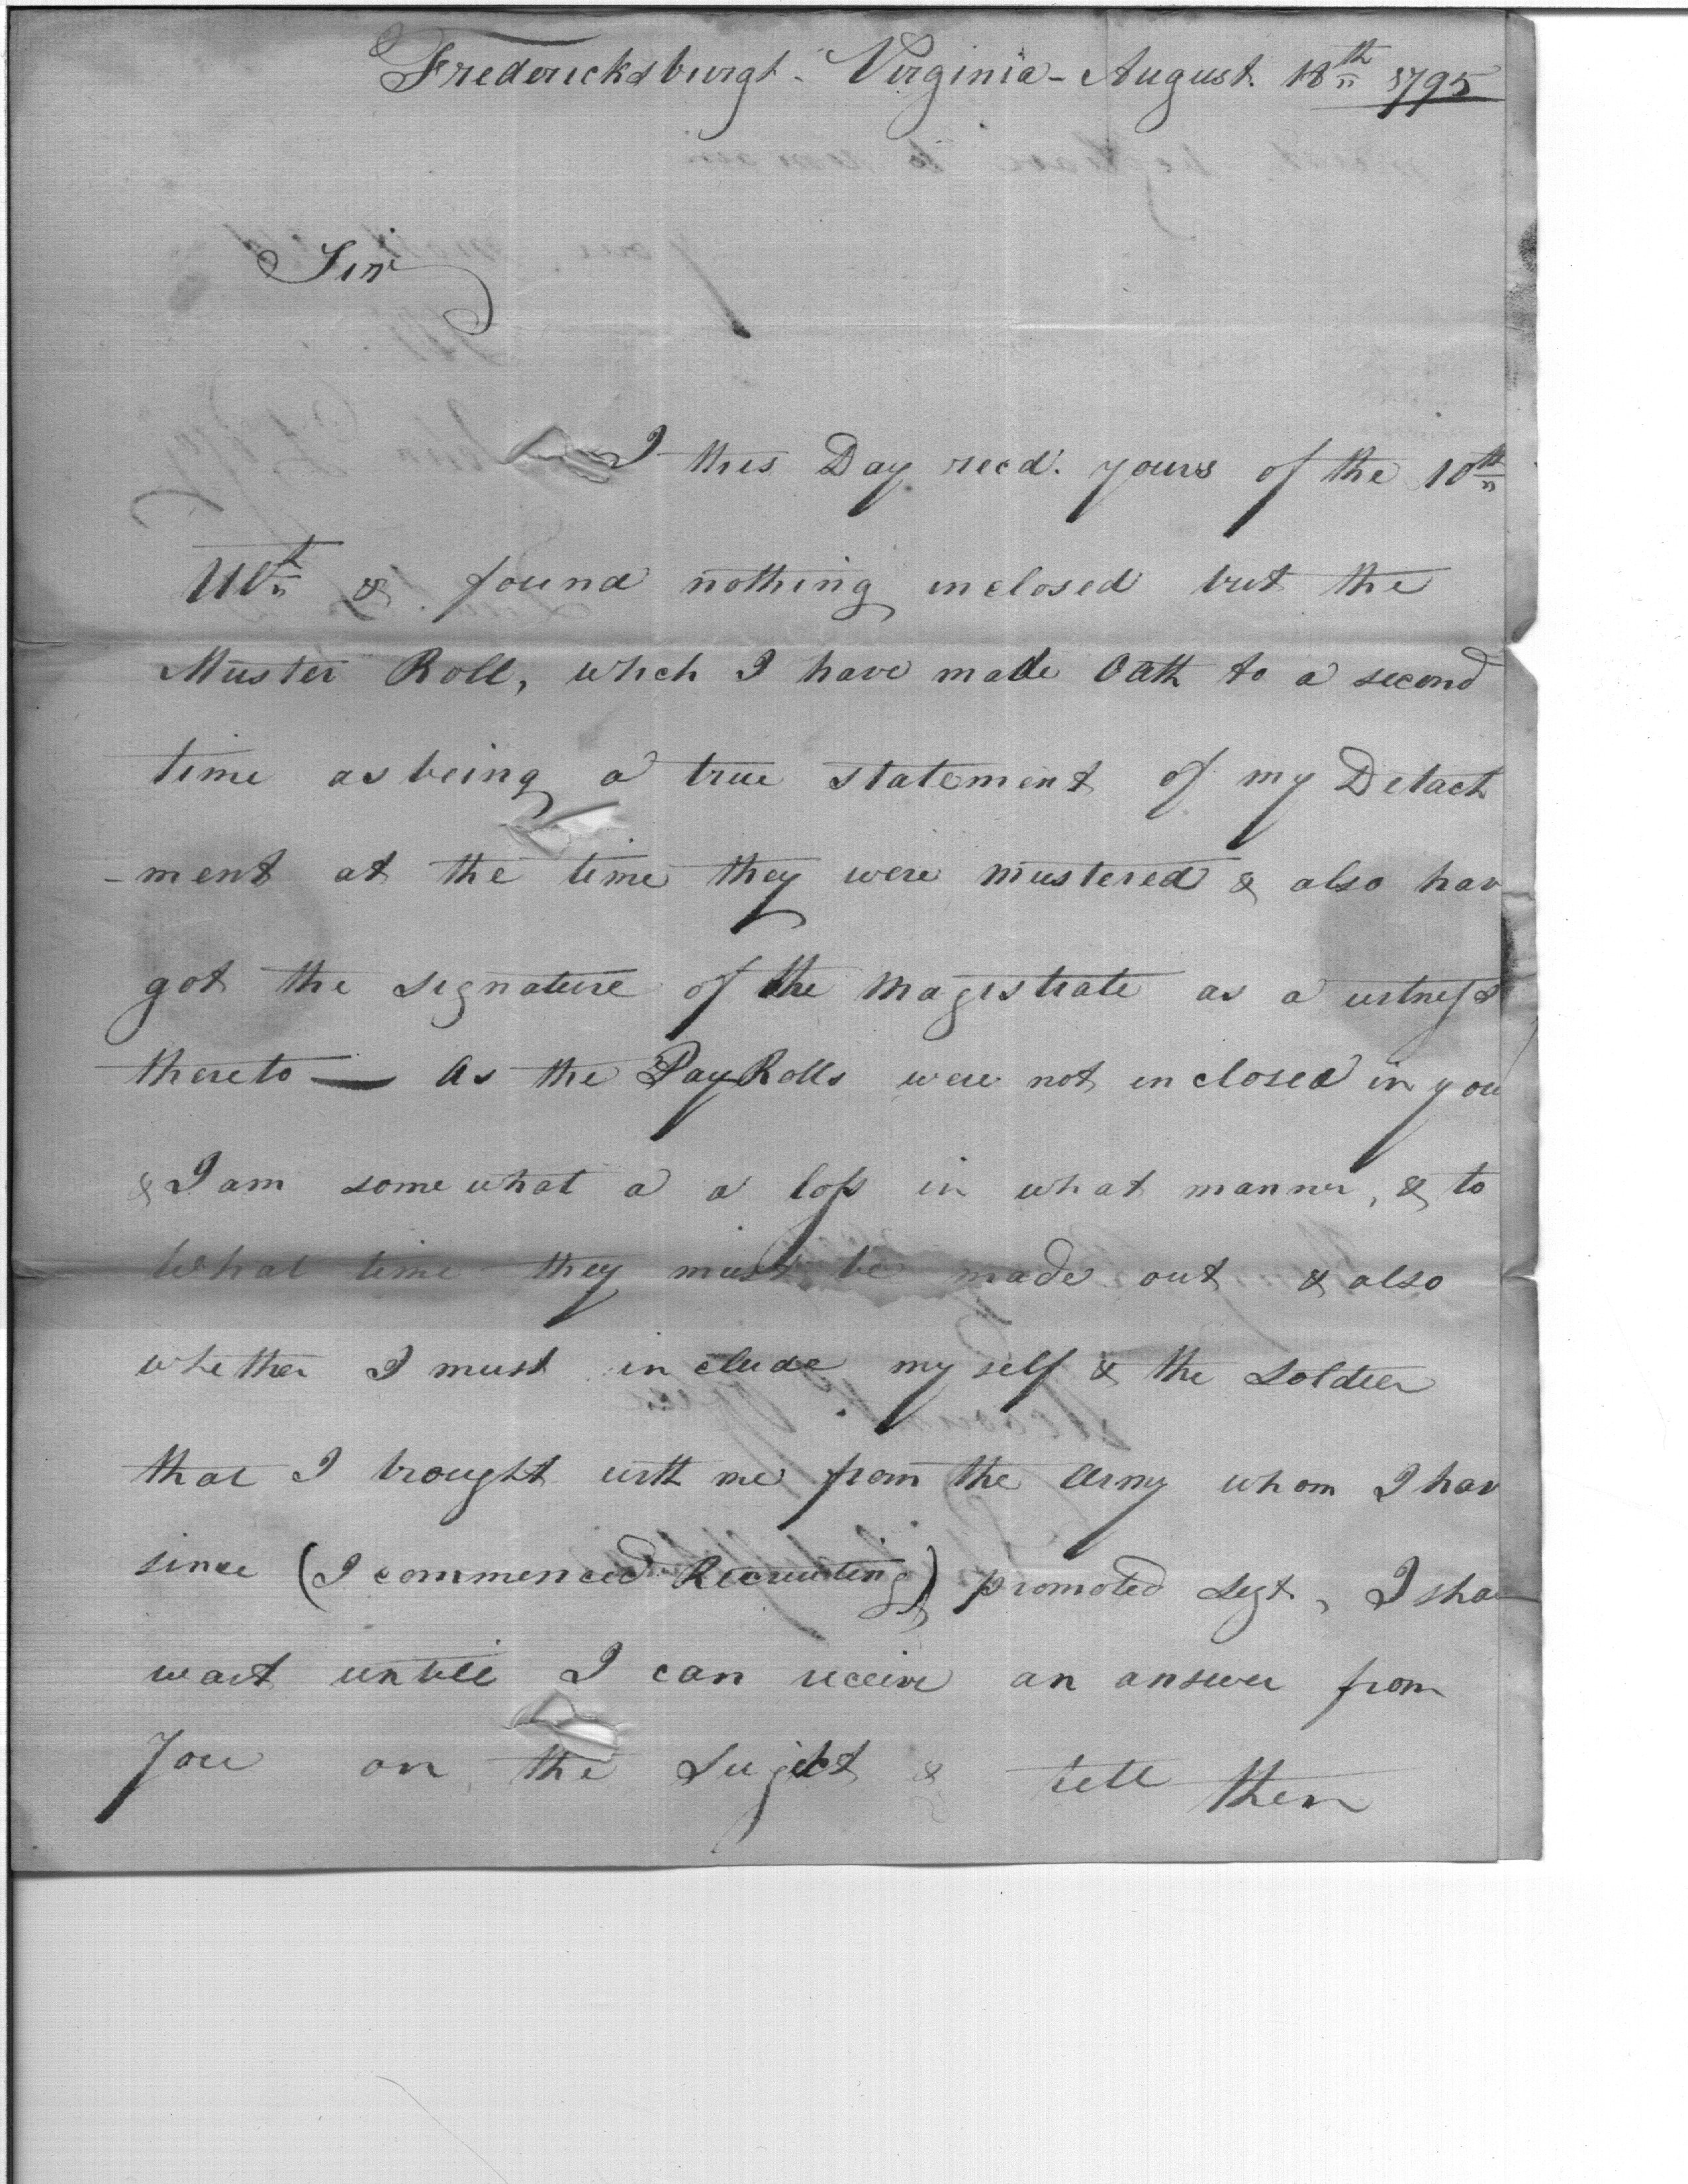 Fredericksburgh - Virginia - August. 18th 1795
Sir
I this Day recd. yours of the 10th
Ult & found nothing inclosed but the
Muster Roll, which I have made Oath to a second
time as being a true statement of my Detach
-ment at the time they were mustered & also hav
got the signature of the Magistrate as a witness
thereto — As the Pay Rolls were not inclosed in you
& I am some what a a loss in what manner, & to
what time they must be made out & also
whether I must include my self & the Soldier
that I brought with me from the Army whom I hav
since (I commenced Recruiting) promoted Segt, I sha
wait untill I can receive an answer from
you on the Sujekt & tell then